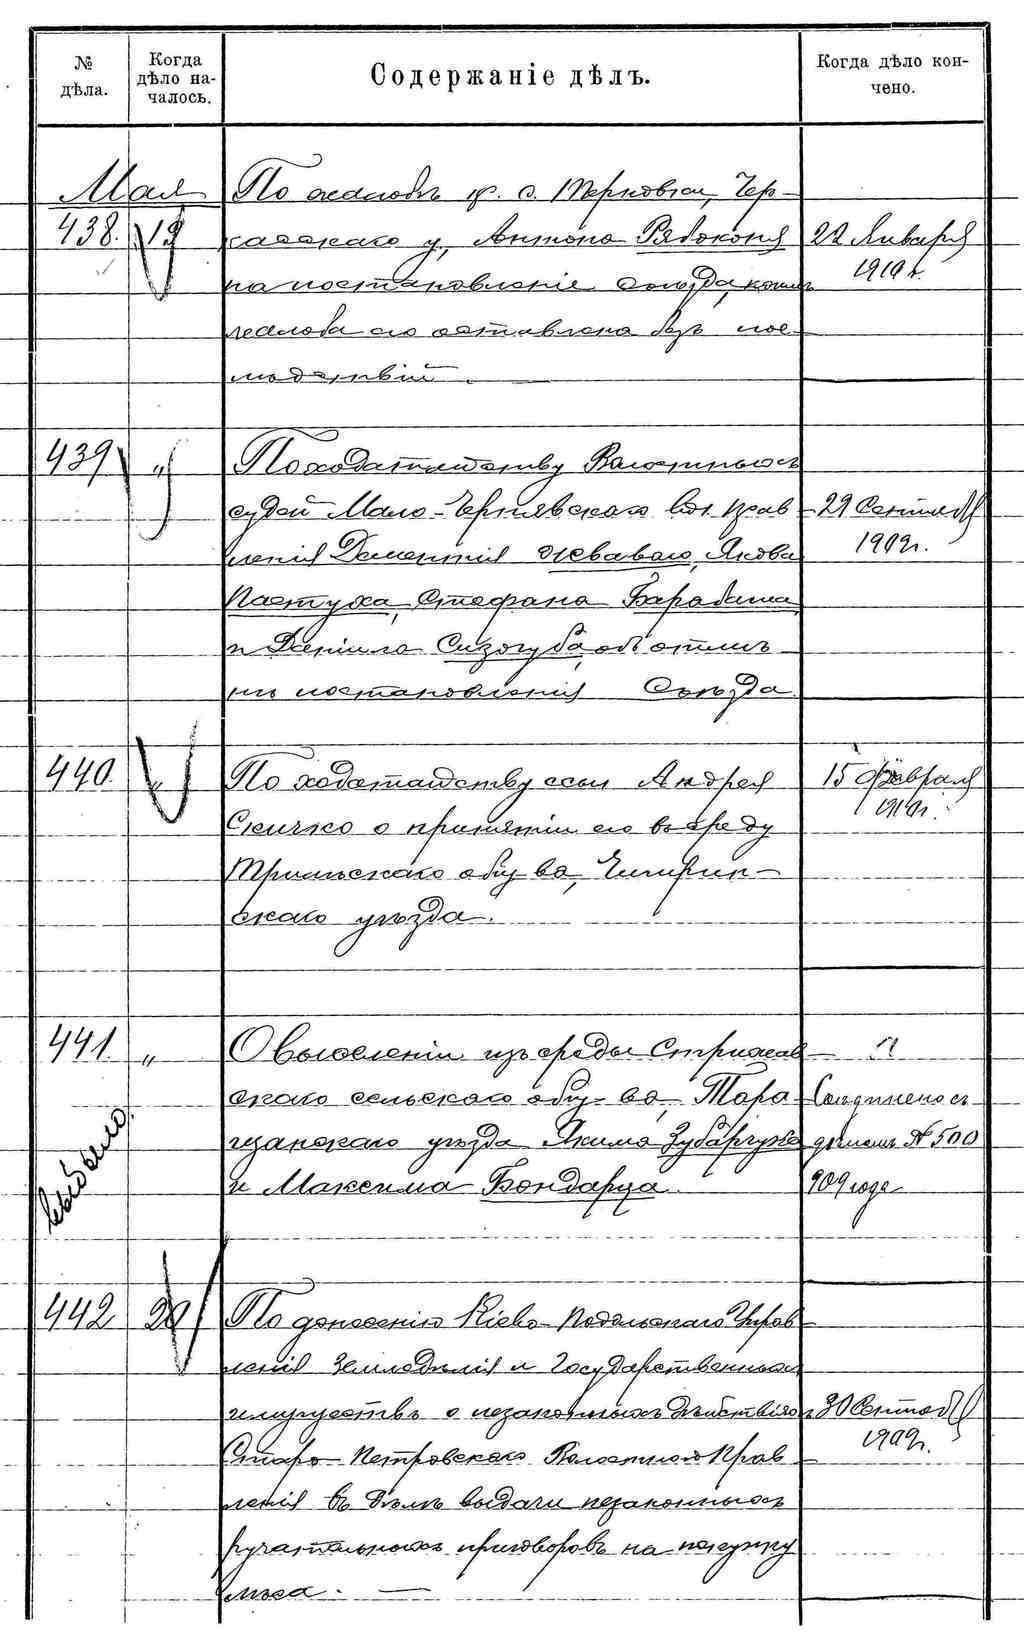 № дѣла.
Когда дѣло на-
чалось.
Содержаніе дѣлъ.
Когда дѣло кон-
чено.
Мая
438. 19 По жалобѣ кр. с. Терновки, Чер-
касскаго у, Антона Рябоконя
на постановленіе съѣзда, коимъ
жалоба его оставлена безъ пос-
лѣдствій.
22 Января
1910 г.
439 " По ходатайству Волостныхъ
судей Мало-Чернявскаго Вол. Прав
ленія Дементія Жваваго, Якова
Пастуха, Стефана Барабаша
и Даніила Сизогуба, объ отмѣ
нѣ постановленія Съѣзда.
29 Сентяб
1909г.
440. " По ходатайству ссы Андрея
Скичко о принятіи его въ среду
Трилѣскаго общ ва, Чигирин-
скаго уѣзда.
15 Февраля
1910г.
441. " О выселеніи изъ среды Стрижав
скаго сельскаго общ-ва, Тара-
щанскаго уѣзда Якима
и Максима Бондарца.
Соединено съ
дѣломъ № 500
909 года
442 20 По донесенію Кіево-Подольскаго Управ
ленія Земледѣлія и Государственныхъ
имуществъ о незаконныхъ дѣйствіяхъ
Старо-Петровскаго Волостного Прав
ленія въ дѣлѣ выдачи незаконныхъ
ручательныхъ приговоровъ на покупку
лѣса.
30 Сентяб
1909г.